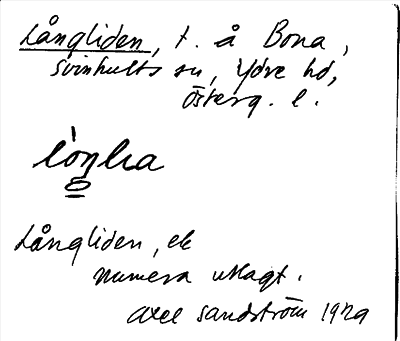 Långliden, t. å Bona,
Svinhults sn, Ydre hd,
Österg. l.
Långliden, ek
numera utlagt.
Axel Sandström 1929